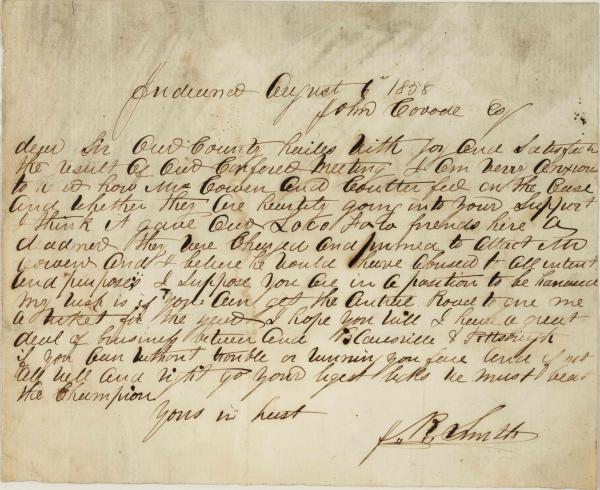 Indeanna August 6th 1858
John Covode Esq
dear Sir Our County hailes With Joy and Satisfactn
the result of Our Confered Meeting I am very anxious
to know how Mr Cowen and Coulter feel on the Case
And Whether they are heartily going into your Support
I think it gave Our Loco Foco friends here a
they were Charged and to attact Mr
Cowen and I believe he Would have abused to all intent
and purposes I suppose you are in a position to be
my Wish is if you Can get the Roade to give me
a ticket for the year I hope you Will I have a great
deal of buisness between and Blairsville & Pittsburgh
if you Can Without trouble or and if not
All Well and right go your best licks he must beat
the Champion
Yours in hast
J. R. Smith